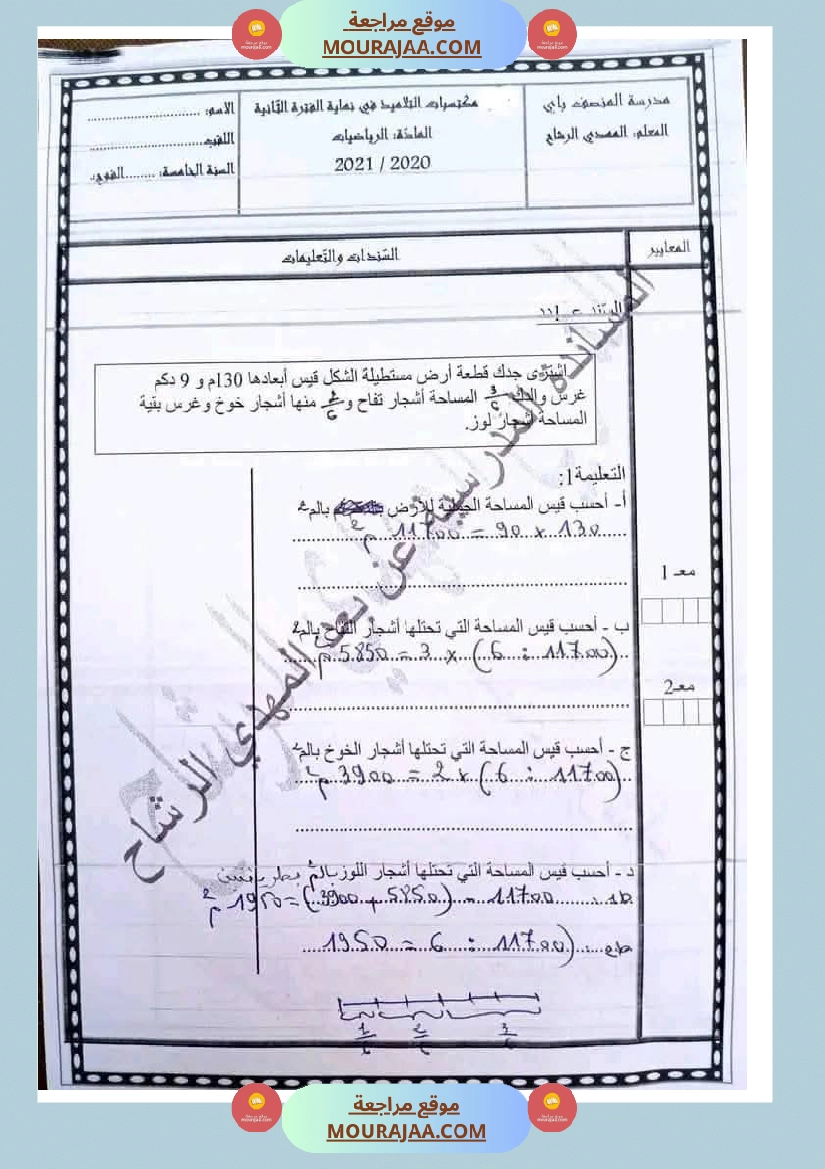 موقع مراجعة
MOURAJAA.COM
مدرسة المنصف باي
المعلم: المهدي الرشاح
مكتسبات التلاميذ في نهاية الفترة الثانية
المادة: الرياضيات
2021 / 2020
الاسم: ..............................
اللقب..............................
السنة الخامسة: ........الفوج:.
المعايير
السّندات والتّعليمات
السّند عـ 1ـدد
اشترى جدك قطعة أرض مستطيلة الشكل قيس أبعادها 130م و 9 دكم
غرس والدك 3/6 المساحة أشجار تفاح و 2/6 منها أشجار خوخ وغرس بقية
المساحة أشجار لوز.
التعليمة1:
أ- أحسب قيس المساحة الجملية للأرض بالم2
130 x 90 = 11700 م2
معـ 1
ب - أحسب قيس المساحة التي تحتلها أشجار التفاح بالم2
(11700 : 6) x 3 = 5850 م2
معـ2
ج - أحسب قيس المساحة التي تحتلها أشجار الخوخ بالم2
(11700 : 6) x 2 = 3900 م2
د - أحسب قيس المساحة التي تحتلها أشجار اللوز بالم2 بطريقتين
ط1: 11700 - (5850 + 3900) = 1950 م2
ط2: (11700 : 6 = 1950
1/6 2/6 3/6
المساندة المدرسية عن بعد المهدي الرشاح
موقع مراجعة
MOURAJAA.COM